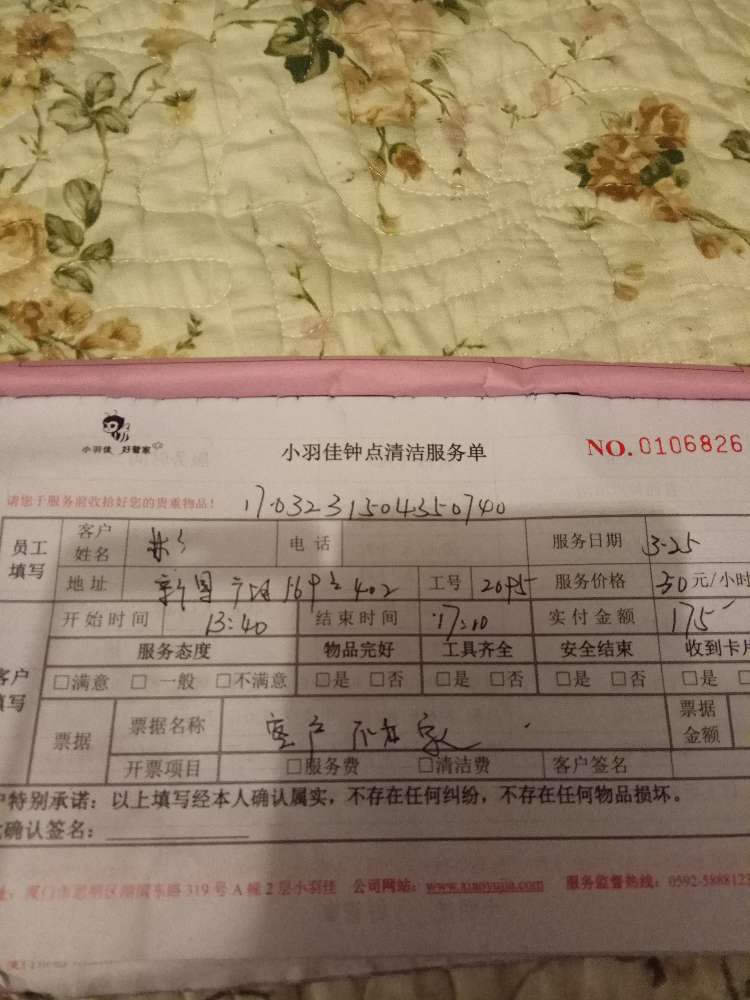 小羽佳 好管家
小羽佳钟点清洁服务单
NO. 0106826
请您于服务前收拾好您的贵重物品!
1703231504350740
员工填写 客户姓名 电话 服务日期 3-25
地址 402 工号 2095 服务价格 50元/小时
开始时间 13:40 结束时间 17:10 实付金额 175
客户填写 服务态度 物品完好 工具齐全 安全结束 收到卡片
□满意 □一般 □不满意 □是 □否 □是 □否 □是 □否 □是
票据 票据名称 客户不在家 票据金额
开票项目 □服务费 □清洁费 客户签名
户特别承诺：以上填写经本人确认属实，不存在任何纠纷，不存在任何物品损坏。
确认签名：
厦门市思明区湖滨东路319号A幢2层小羽佳 公司网站：www.xiaoyujia.com 服务监督热线：0592-5888123